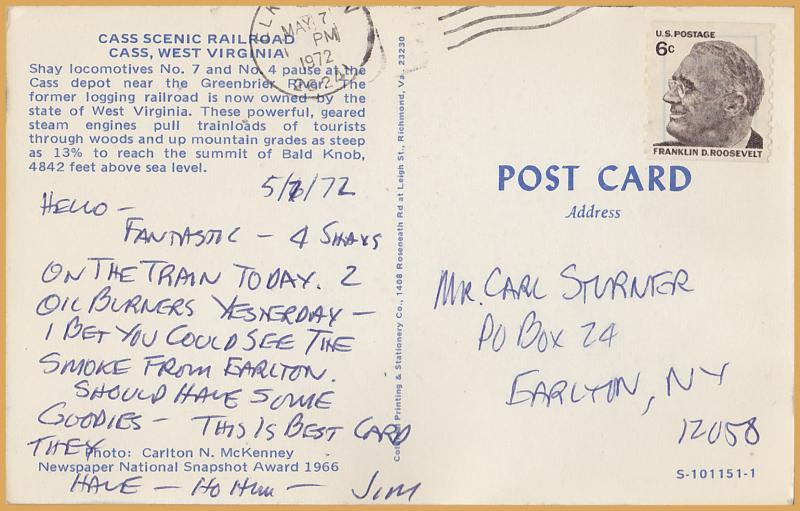 CASS SCENIC RAILROAD
CASS, WEST VIRGINIA
Shay locomotives No. 7 and No. 4 pause at the
Cass depot near the Greenbrier River. The
former logging railroad is now owned by the
state of West Virginia. These powerful, geared
steam engines pull trainloads of tourists
through woods and up mountain grades as steep
as 13% to reach the summit of Bald Knob,
4842 feet above sea level.
5/7/72
HELLO –
FANTASTIC – 4 SHAYS
ON THE TRAIN TODAY. 2
OIL BURNERS YESTERDAY –
I BET YOU COULD SEE THE
SMOKE FROM EARLTON.
SHOULD HAVE SOME
GOODIES – THIS IS BEST CARD
THEY
Photo: Carlton N. McKenney
Newspaper National Snapshot Award 1966
HAVE – HO HUM – JIM
Printing & Stationery Co., 1408 Roseneath Rd at Leigh St., Richmond, Va. 23230
MAY 7
PM
1972
U.S. POSTAGE
6c
FRANKLIN D. ROOSEVELT
POST CARD
Address
MR. CARL STURNER
PO BOX 24
EARLTON, NY
12058
S-101151-1